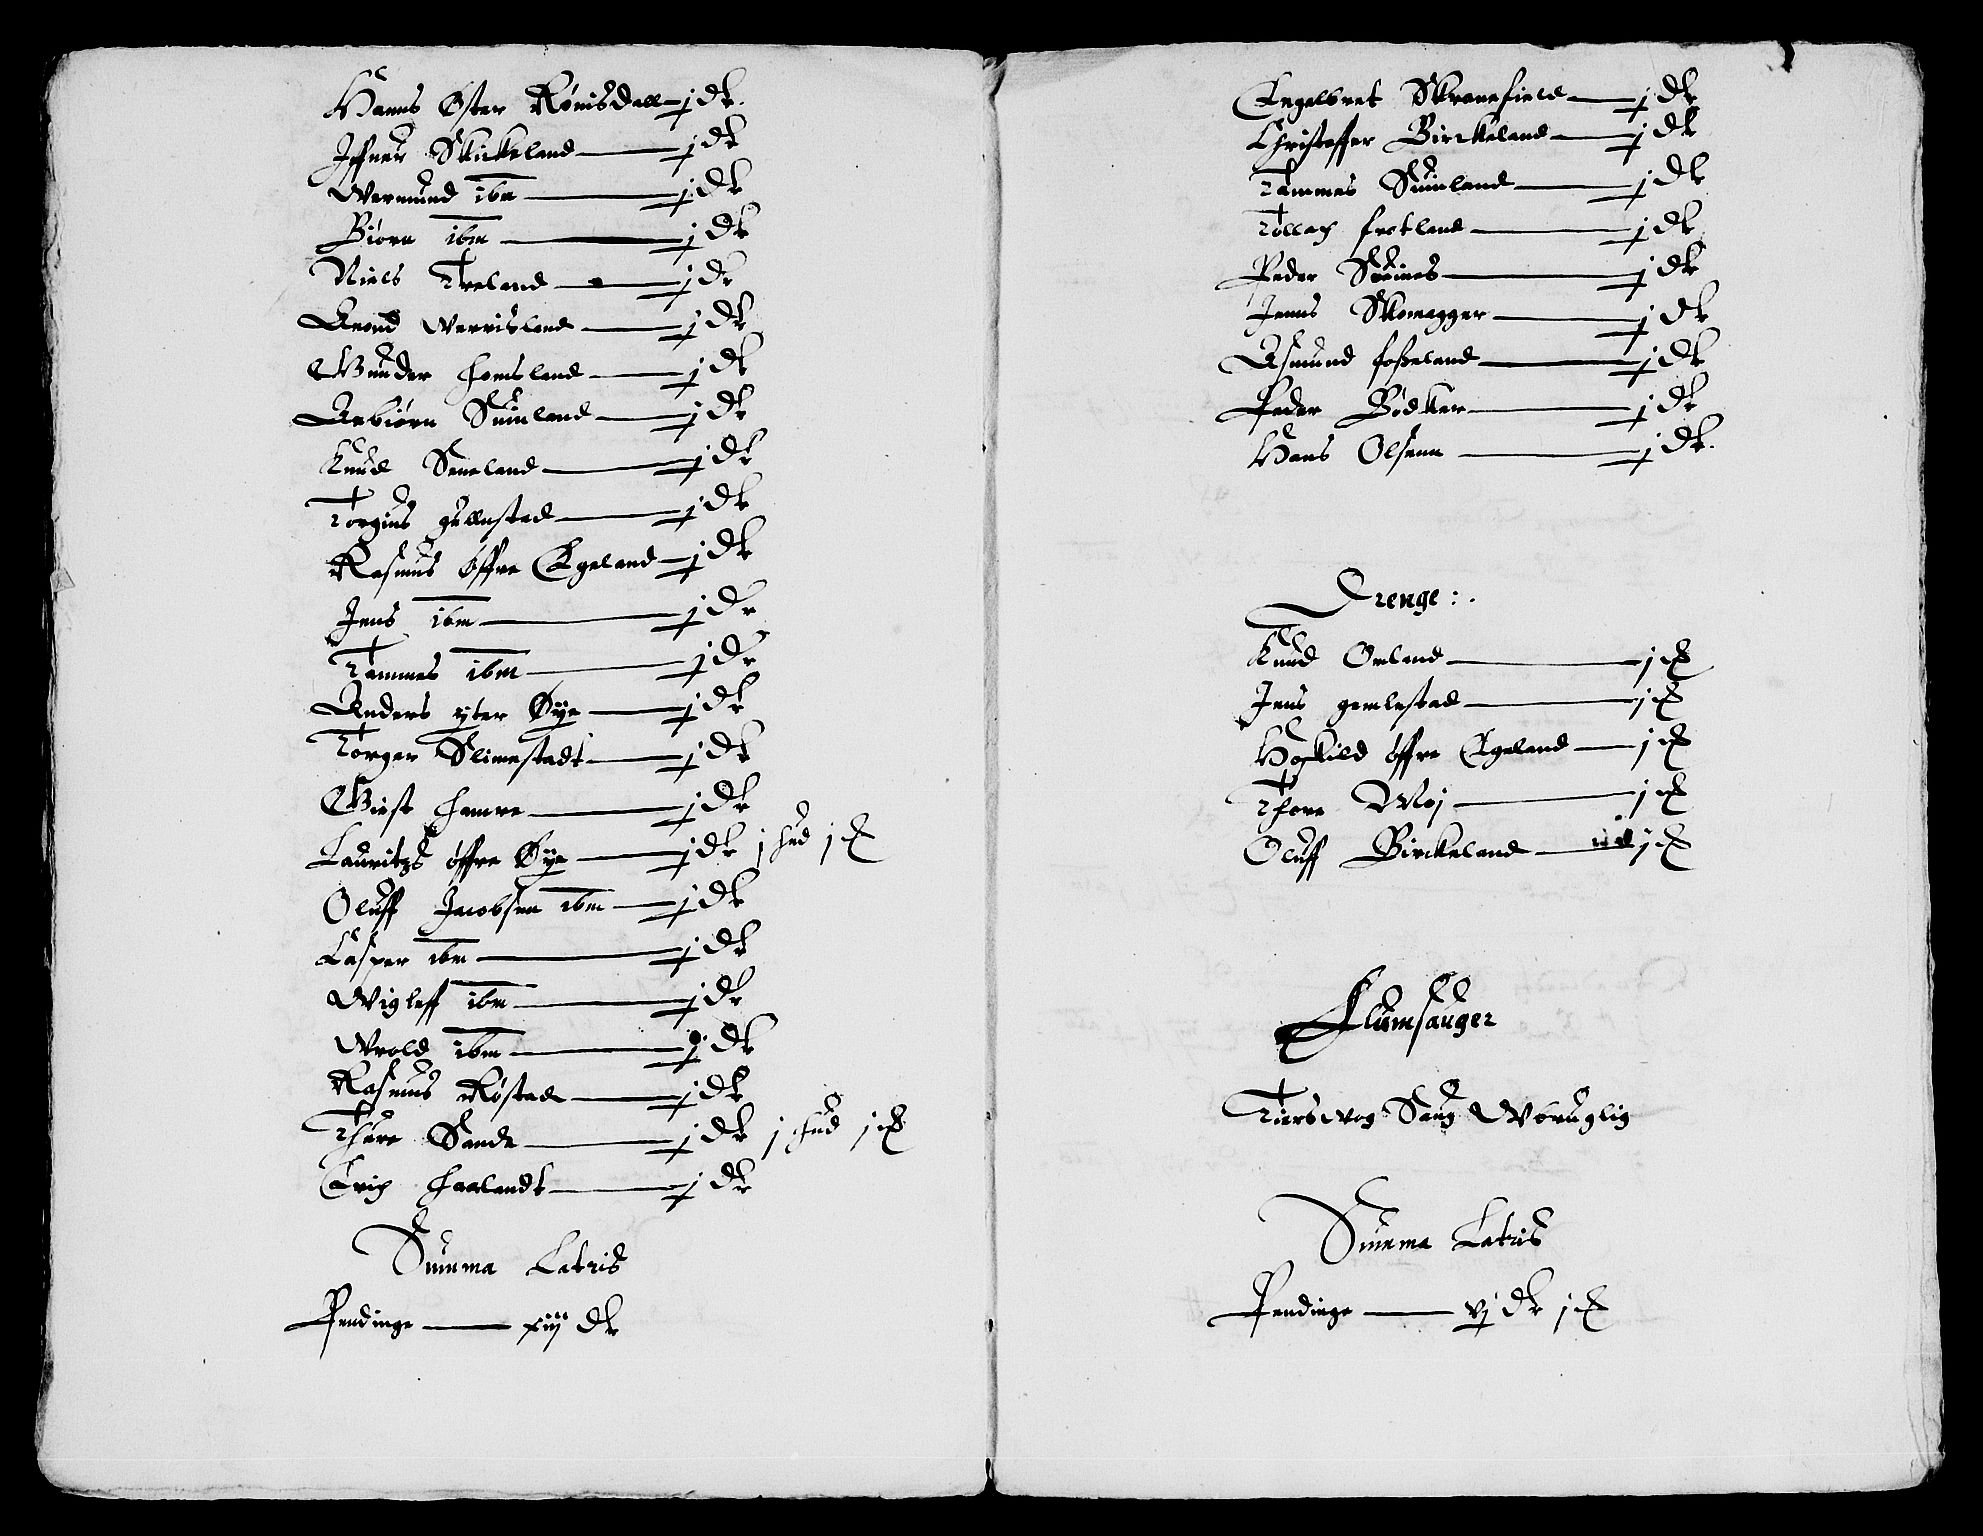 Hanns Øster Rønisdall j dr.
Iffuer Skickeland j dr
Wermund ibm j dr
Biørn ibm j dr
Niels Treland j dr
Anond Werrisland j dr
Gunder homsland j dr
Asbiørn Suinland j dr
Knud Seneland j dr
Torgius gullestad j dr
Rasmus øffre Egeland j dr
Jens ibm j dr
Tammes ibm j dr
Anders yter Øye j dr
Torger Slimestadt j dr
Giest hamre j dr
Lauritzs øffre Øye j dr j hud j
Oluff Jacobsen ibm j dr
Casper ibm j dr
Wigleff ibm j dr
Wrold ibm j dr
Rasmus Røstad j dr
Thure Sande j dr j hud j
Erich haalandt j dr
Summa Latris
Pendinge xiiij dr
Engelbret Skranefield j dr
Christoffer Birckeland j dr
Tammes Suinland j dr
Tollach frotland j dr
Peder Steines j dr
Jenns Skomagger j dr
Asmund foßeland j dr
Peder Bødker j dr
Hans Olsenn j dr.
Drenge:
Knud Omland j
Jens gemlestad j
Hoskild øffre Egeland j
Thore Moj j
Oluff Birckeland j
Flumsauger
Tiersuog Saug Wbruglig
Summa Latris
Pendinge vj dr j